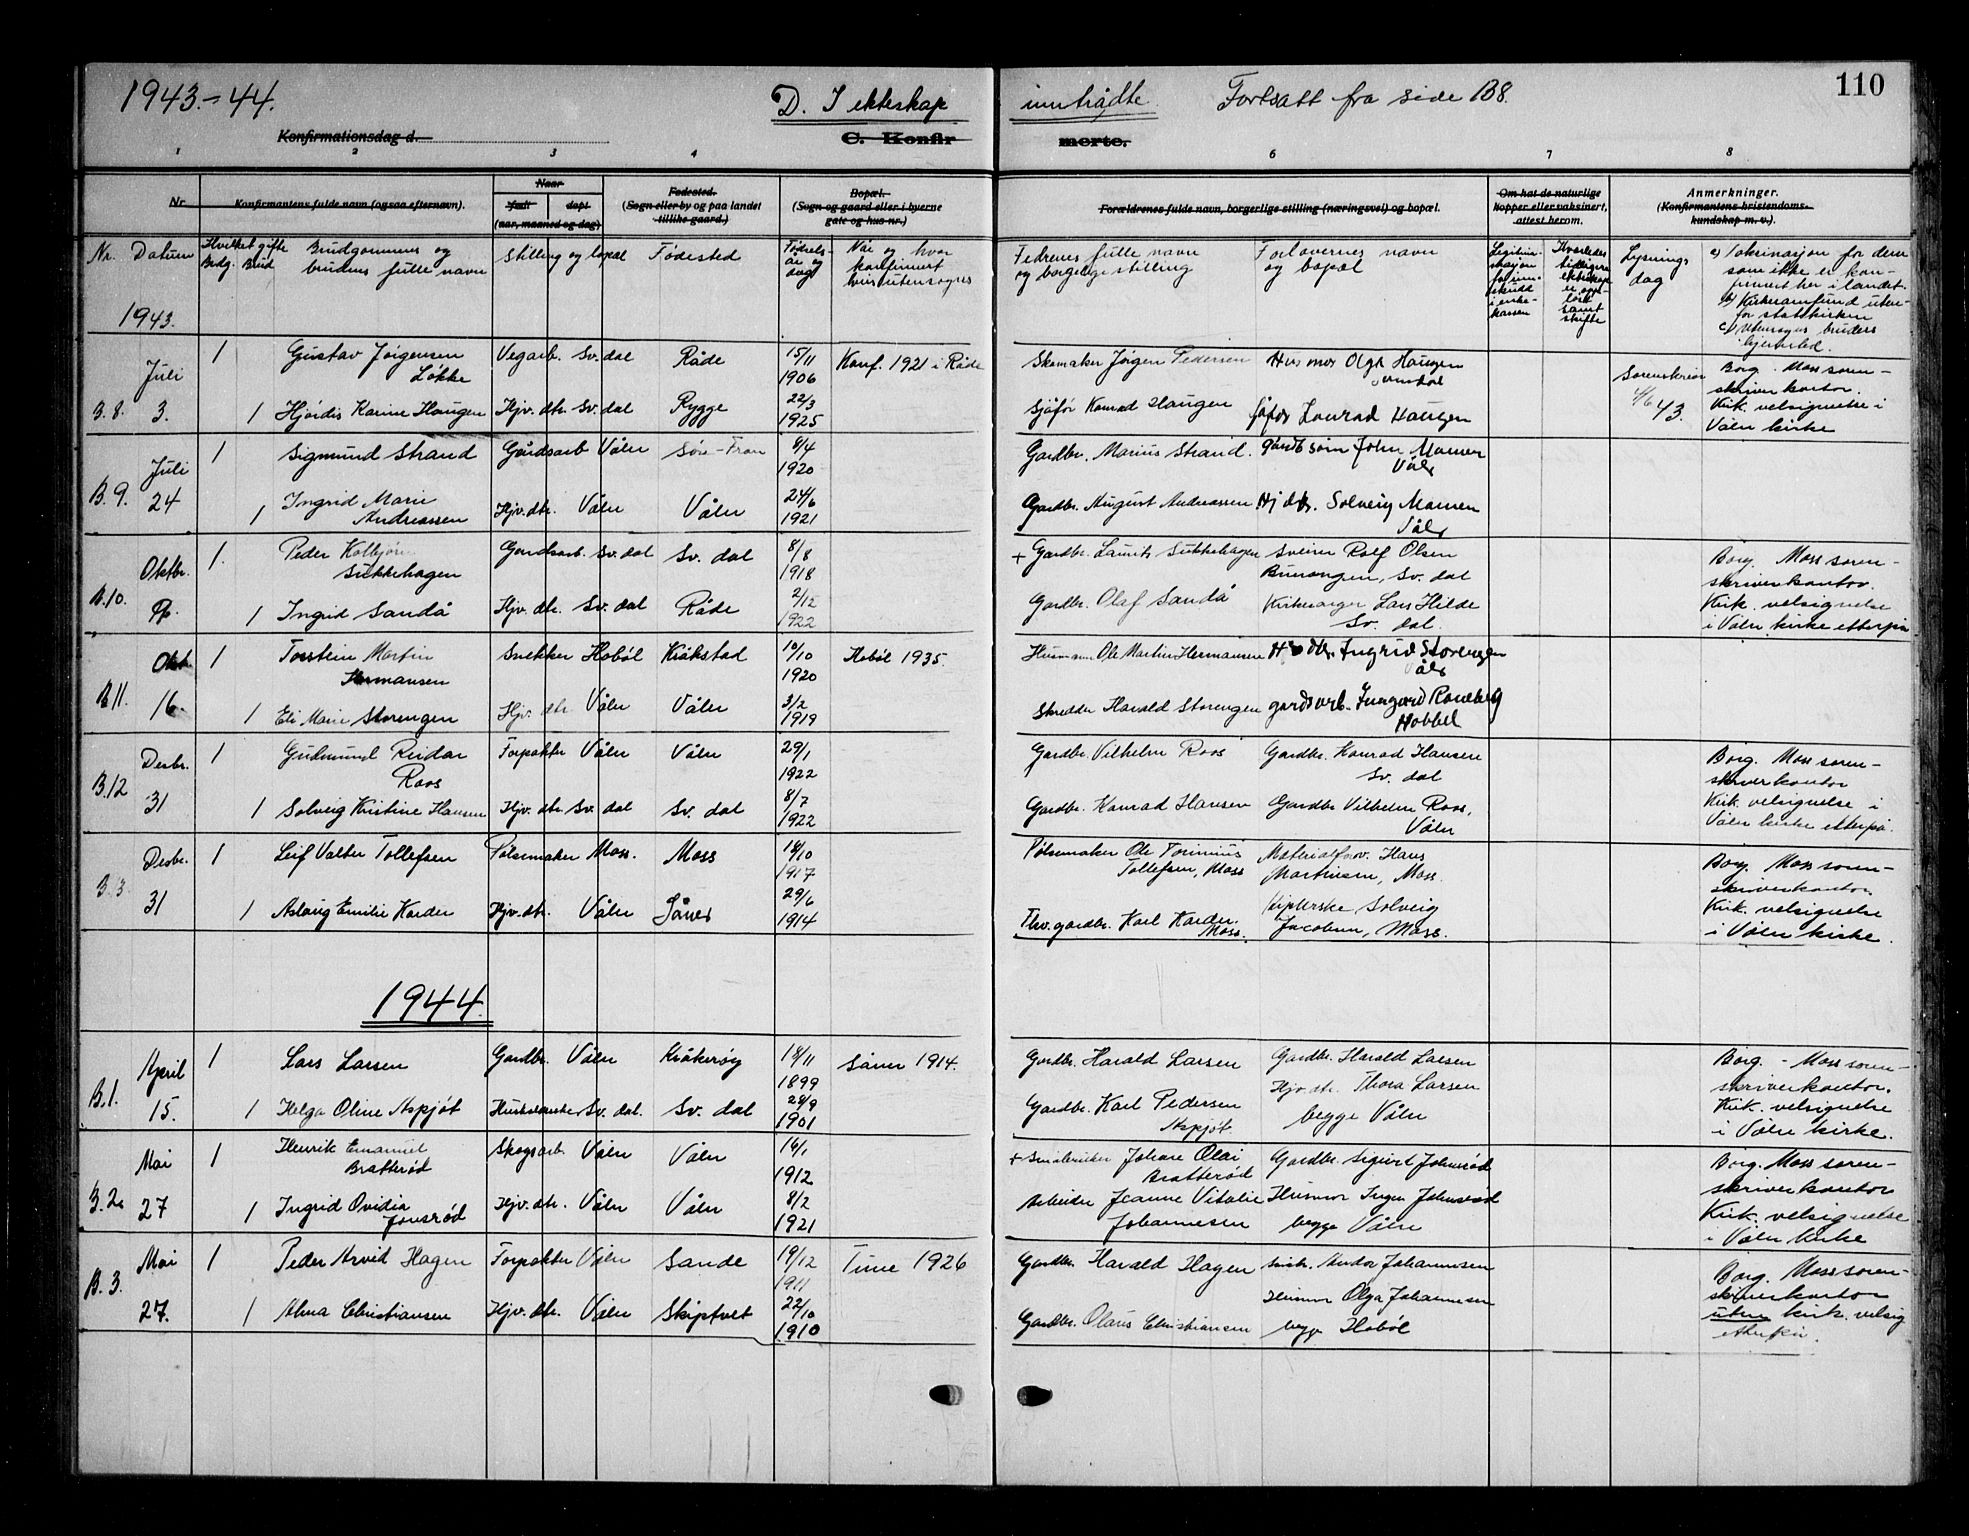 1943.-44.
D. I ekteskap inntrådte. Fortsatt fra side 138.
110
Konfirmationsdag d.
C. Konfirmerte.
1 2 3 4 6 7 8
Nr. Konfirmantens fulde navn (ogsaa efternavn).
Naar født døpt (aar, maaned og dag)
Fødested. (Sogn eller by og paa landet tillike gaard.)
Bopæl. (Sogn og gaard eller i byerne gate og hus nr.)
Forældrenes fulde navn, borgerlige stilling (næringsvei) og bopæl.
Om hat de naturlige kopper eller vaksinert, attest herom.
Anmerkninger. (Konfirmantens kristendomskundskap m. v.).
Nr. Datum Hvilket gifte Brdg. Brud Brudgommens og brudens fulle navn Stilling og bopæl Fødested Fødsels-år og dag Når og hvor konfirmert hvis utensognes
Fedrenes fulle navn og borgerlige stilling Forlovernes navn og bopæl
Lysningsdag
a) Vaksinasjon for dem som ikke er konfirmert her i landet.
b) Kirkesamfund utenfor statskirken
c) Utensogns bruders hjemsted.
1943.
B.8. Juli 3. 1 Gustav Jørgensen Løkke Vegarb. Sv.dal Råde 15/11 1906 Konf. 1921 i Råde Skomaker Jørgen Pedersen Husmor Olga Haugen
1 Hjørdis Karine Haugen Hjv. dtr. Sv. dal Rygge 22/3 1925 Sjåfør Konrad Haugen Sjåfør Konrad Haugen
Sorenskriver 4/6 43. Borg. Moss sorenskriverkontor. Kirk. velsignelse i Våler kirke
B.9. Juli 24 1 Sigmund Strand Gårdsarb Våler Søre-Fron 8/4 1920 Gardbr. Marius Strand. John Mamen Våler
1 Ingrid Marie Andreassen Hjv. dtr. Våler Våler 24/6 1921 Gardbr. August Andreassen Hj dtr. Solveig Mamen Våler
B.10. Oktbr. 1. Peder Kolbjørn Sukkehagen Gardsarb. Sv. dal Sv. dal 8/8 1918 + Gardbr. Laurits Sukkehagen Rolf Olsen Bunangen, Sv. dal
1 Ingrid Sandå Hjv. dtr. Sv. dal Råde 2/12 1922 Gardbr. Olaf Sandå Kirkesanger Lars Hilde Sv. dal.
Borg. Moss sorenskriverkontor. Kirk. velsignelse i Våler kirke etterpå
B.11. Okt 16. 1 Torstein Martin Hermansen Snekker Hobøl Kråkstad 10/10 1920 Hobøl 1935. Ole Martin Hermansen Ingrid Storengen Våler
1 Eli Marie Storengen Hjv. dtr. Våler Våler 3/2 1919 Skredder Harald Storengen gardsarb. Hobbel
B.12 Desbr. 31 1 Gudmund Reidar Roos Forpakter Våler Våler 29/1 1922 Gardbr. Vilhelm Roos Gardbr. Konrad Hansen Sv. dal
1 Solveig Kristine Hansen Hjv. dtr. Sv. dal Sv. dal 8/7 1922 Gardbr. Konrad Hansen Gardbr Vilhelm Roos, Våler
Borg. Moss sorenskriverkontor Kirk. velsignelse i Våler kirke etterpå.
B.13. Desbr. 31 1 Leif Valter Tollefsen Pølsemaker Moss. Moss 18/10 1917 Pølsemaker Ole Tollefsen, Moss Hans Martinsen, Moss.
1 Aslaug Emilie Karder Hjv. dtr. Våler Såner 29/6 1914 Fhv. gardbr. Karl Karder. Moss. Solveig Jacobsen, Moss.
Borg. Moss sorenskriverkontor. Kirk. velsignelse i Våler kirke.
1944.
B.1. April 15. 1 Lars Larsen Gardbr. Våler Kråkerøy 18/11 1899 Såner 1914. Gardbr. Harald Larsen Gardbr. Harald Larsen
1 Helga Oline Aspjøt Sv. dal. Sv. dal 28/9 1901 Gardbr. Karl Pedersen Aspjøt. Hjv. dtr. Thora Larsen begge Våler
Borg. - Moss sorenskriverkontor. Kirk. velsignelse i Våler kirke.
B.2. Mai 27 1 Henrik Emanuel Bratterød Skogsarb. Våler Våler 16/1 1912 + Småbruker Johan Olai Bratterød Gardbr. Sigurd Johnsrød
1 Ingrid Ovidia Jonsrød Hjv. dtr. Våler Våler 8/2 1921 Arbeider Jeanne Vitalie Johannesen Husmor Inger Johnsrød begge Våler
Borg. Moss sorenskriverkontor Kirk. velsignelse i Våler kirke
B.3. Mai 27. 1 Peder Arvid Hagen Forpakter Våler Sande 19/12 1911 Tune 1926 Gardbr. Harald Hagen Andor Johannesen
1 Alma Christiansen Hjv. dtr. Våler Skiptvet 22/10 1910 Gardbr. Olaus Christiansen Husmor Olga Johannesen begge Hobøl
Borg. Moss sorenskriverkontor uten kirk. velsig etterpå.